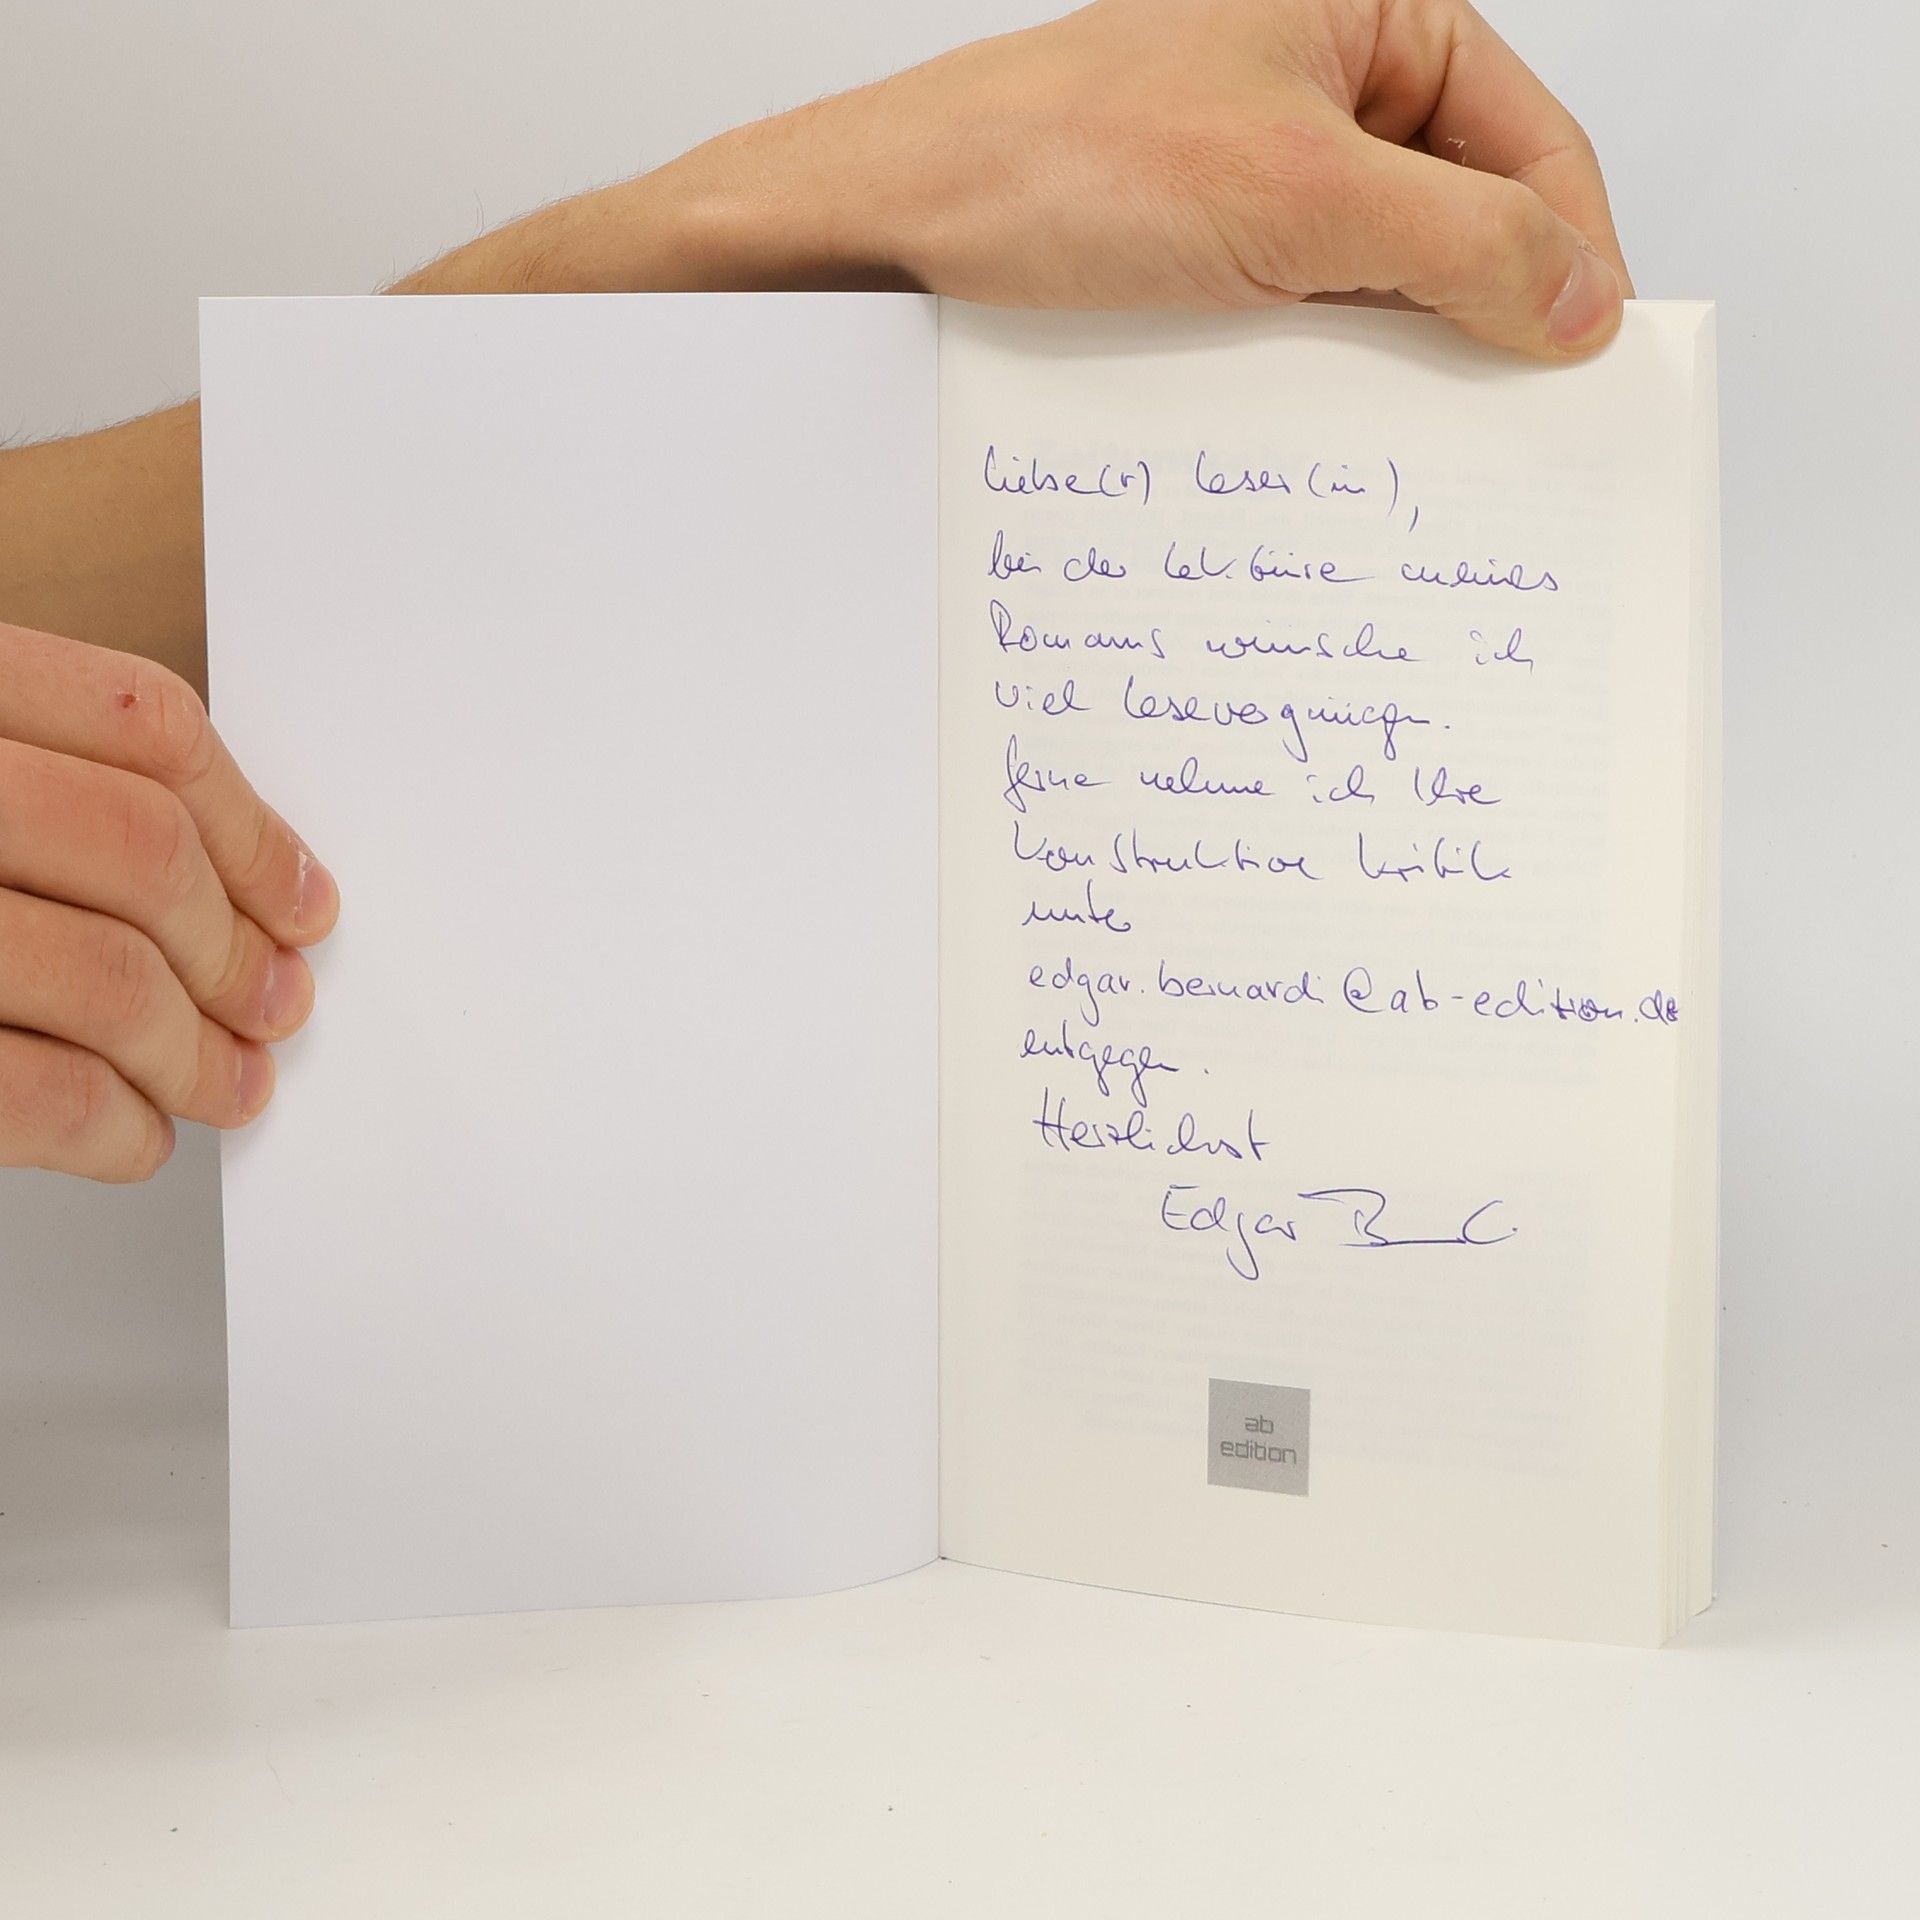 Liebe(r) Leser(in),
bei der Lektüre meines
Romans wünsche ich
viel Lesevergnügen.
Gerne nehme ich Ihre
konstruktive Kritik
unter
edgar.bernardi@ab-edition.de
entgegen.
Herzlichst
Edgar
ab
edition